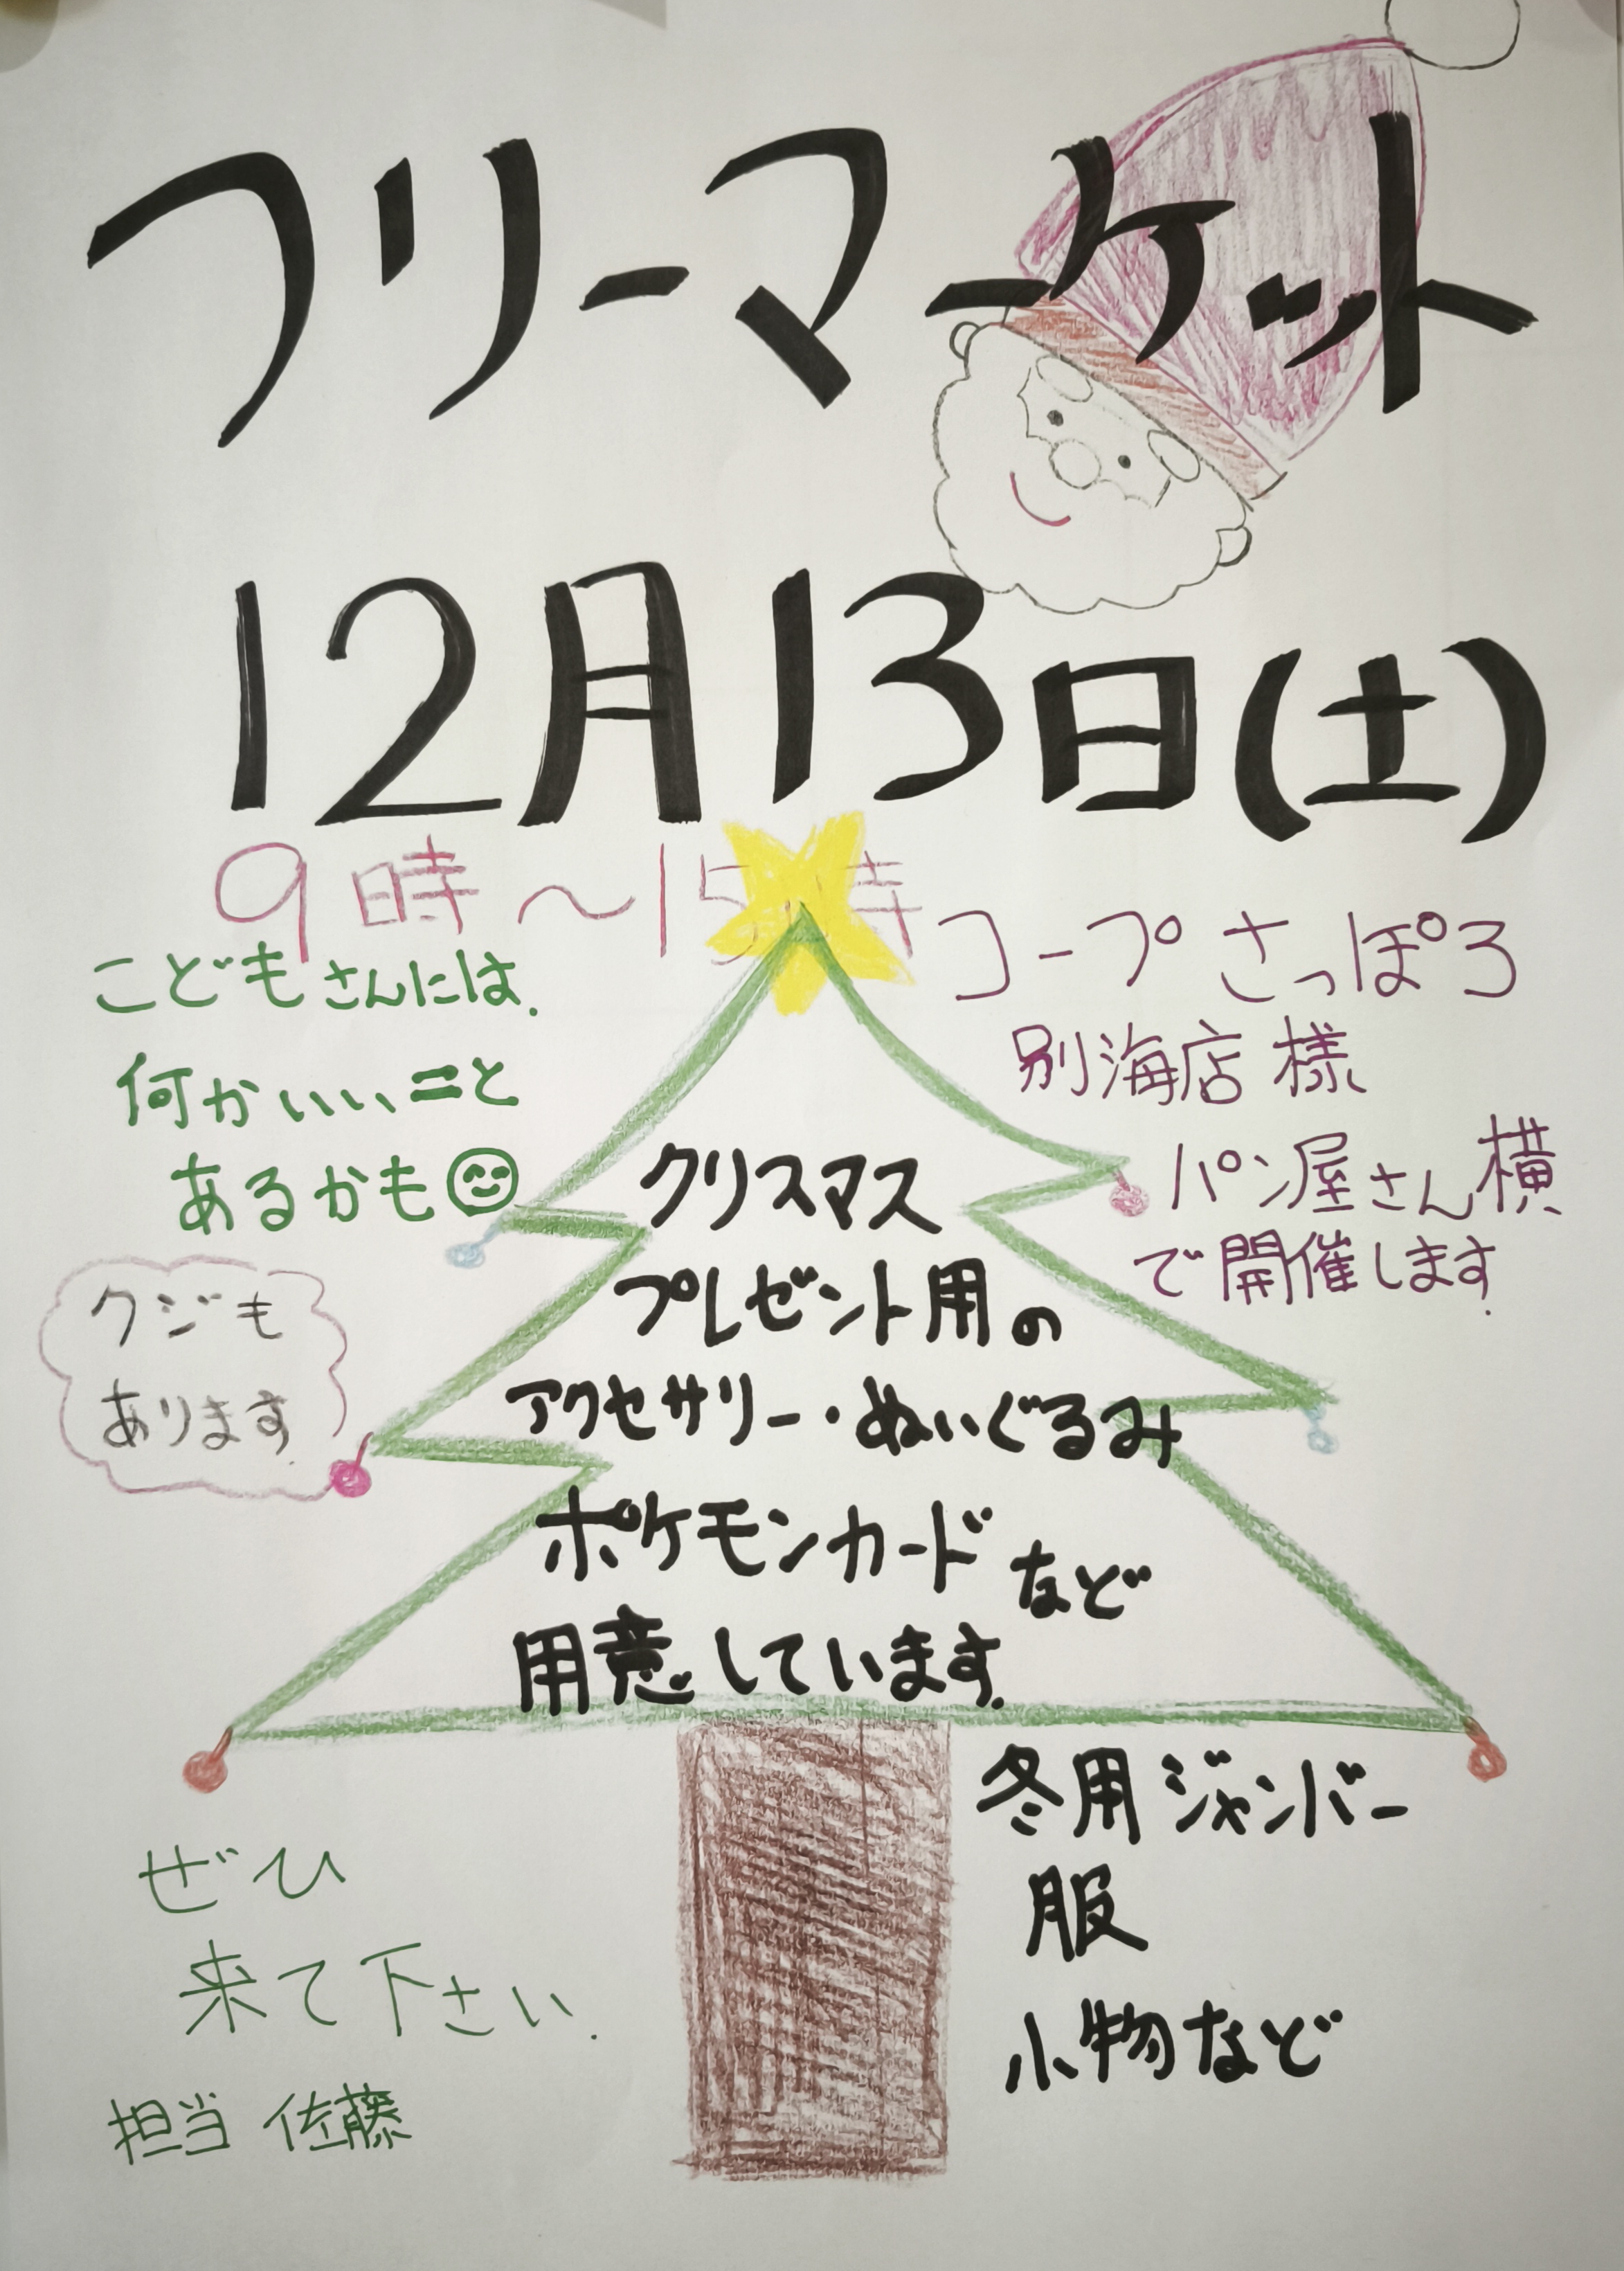 フリーマーケット
12月13日(土)
9時~15時
こどもさんには.
何かいいこと
あるかも
コープさっぽろ
別海店様
パン屋さん横
で開催します.
クジも
あります.
クリスマス
プレゼント用の
アクセサリー・ぬいぐるみ
ポケモンカードなど
用意しています.
冬用ジャンバー
服
小物など
ぜひ
来て下さい.
担当 佐藤